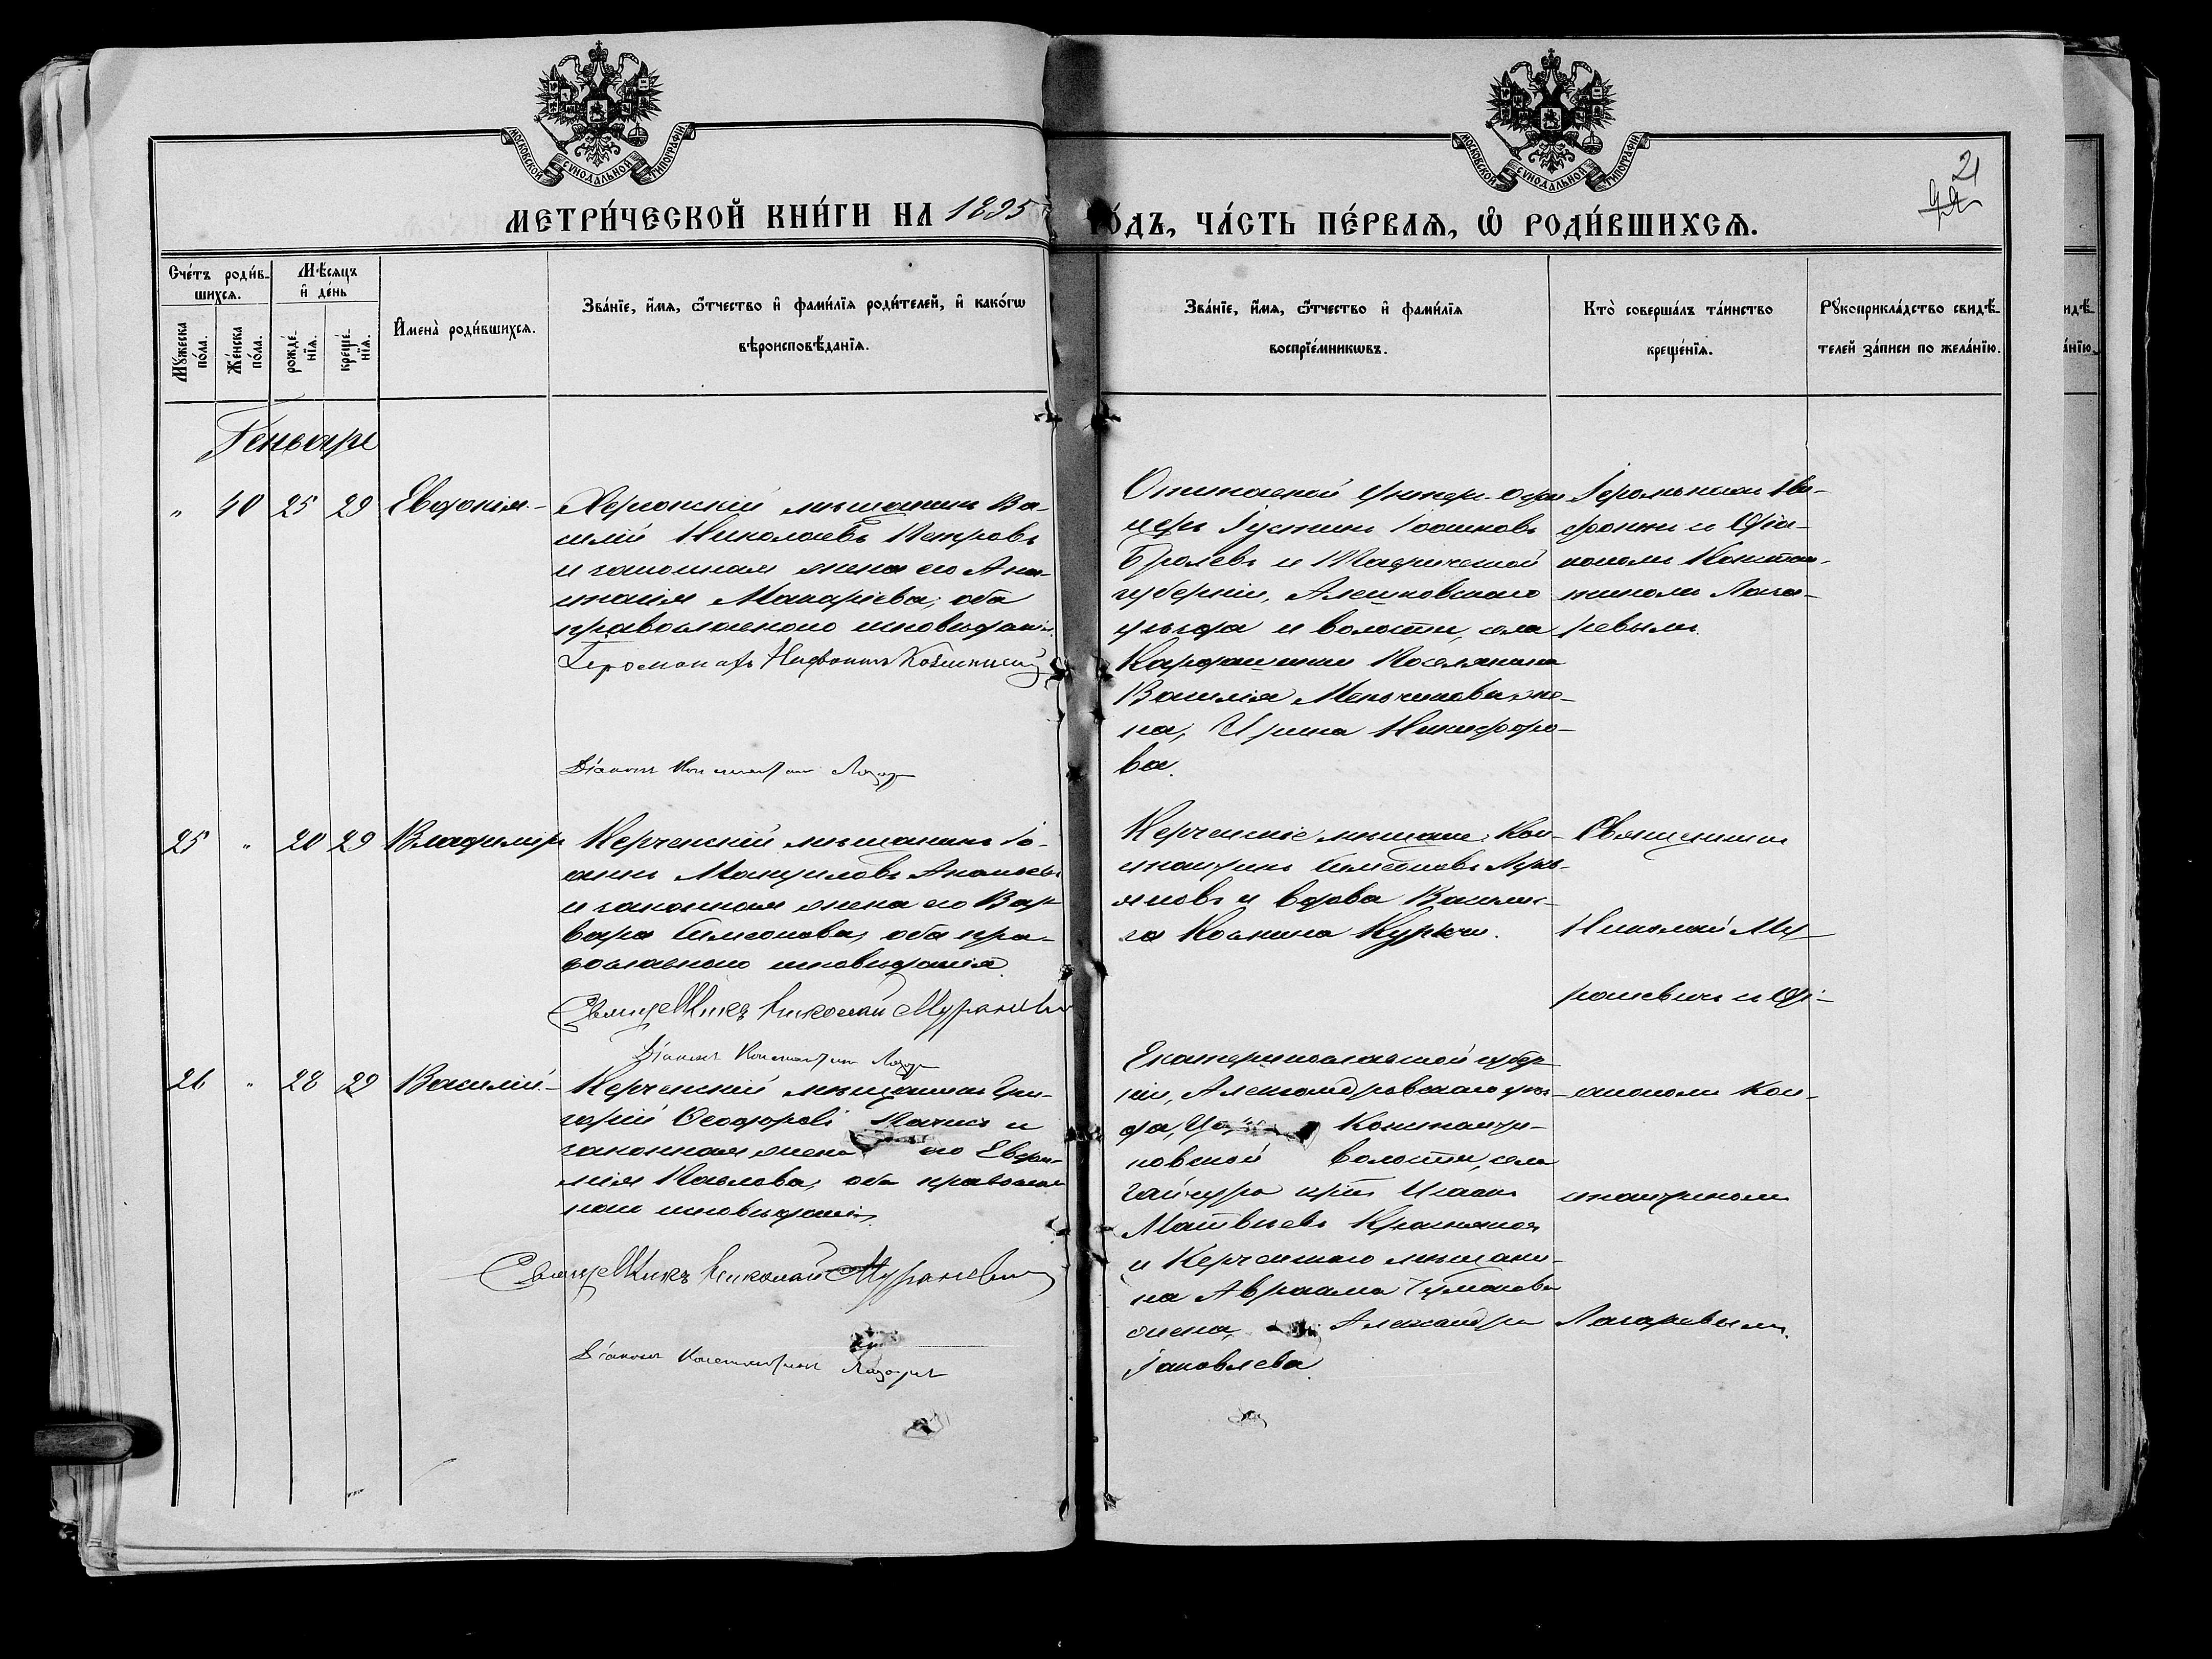 МОСКОВСКОЙ СУНОДАЛЬНОЙ ТИПОГРАФІИ
МОСКОВСКОЙ СУНОДАЛЬНОЙ ТИПОГРАФІИ
21
МЕТРИ́ЧЕСКОЙ КНИ́ГИ НА 1895 ГО́ДЪ, ЧА́СТЬ ПЕ́РВАѦ, Ѡ РОДИ́ВШИХСѦ.
Сче́тъ роди́в-
шихсѧ.
Мѣ́сѧцъ
и҆ де́нь
Мꙋ́жеска
по́ла.
Же́нска
по́ла.
рожде́-
нїѧ.
креще́-
нїѧ.
И҆мена̀ роди́вшихсѧ.
Зва́нїе, и҆́мѧ, ѻ҆́тчество и҆ фами́лїѧ роди́телей, и҆ како́гѡ
вѣроисповѣ́данїѧ.
Зва́нїе, и҆́мѧ, ѻ҆́тчество и҆ фами́лїѧ
воспрїе́мникѡвъ.
Кто̀ соверша́лъ та́инство
креще́нїѧ.
Рꙋкоприкла́дство свидѣ́-
телей за́писи по жела́нїю.
Генварь
" 40 25 29 Евдокія.
Херсонскій мѣщанинъ Ва-
силій Николаевъ Петровъ
и законная жена его Ана-
стасія Макаріева, оба
православнаго исповѣданія.
Іеромонахъ
Діаконъ Константинъ Лазаревъ
Отставной Унтеръ-Офи-
церъ Іустинъ
и Таврической
губерніи, Алешковскаго
уѣзда и волости, села
Кардашинки Поселянина
Василія Меньшикова же-
на, Ирина Никифоро-
ва.
Іеромонахъ
и Діа-
кономъ Констан-
тиномъ Лаза-
ревымъ.
25 " 20 29 Владиміръ
Керченскій мѣщанинъ Іо-
аннъ Мануиловъ Ананьевъ
и законная жена его Вар-
вара Симеонова, оба пра-
вославнаго исповѣданія.
Священникъ Николай
Діаконъ Константинъ Лазаревъ
Керченскіе мѣщане: Кон-
стантинъ Симеоновъ
и вдова Василис-
са
Священникъ
Николай
и Ді-
акономъ Кон-
стантиномъ
Лазаревымъ.
26 " 28 29 Василій.
Керченскій мѣщанинъ Гри-
горій Ѳеодоровъ и
законная жена его Евфи-
мія Павлова, оба православ-
наго исповѣданія.
Священникъ Николай
Діаконъ Константинъ Лазаревъ
Екатеринославской губер-
ніи, Александровскаго уѣз-
да, Константи-
новской волости, села
Гайчура кр. Исаакъ
Матвѣевъ
и Керченскаго мѣщани-
на Авраама
жена, Александра
Іаковлева.